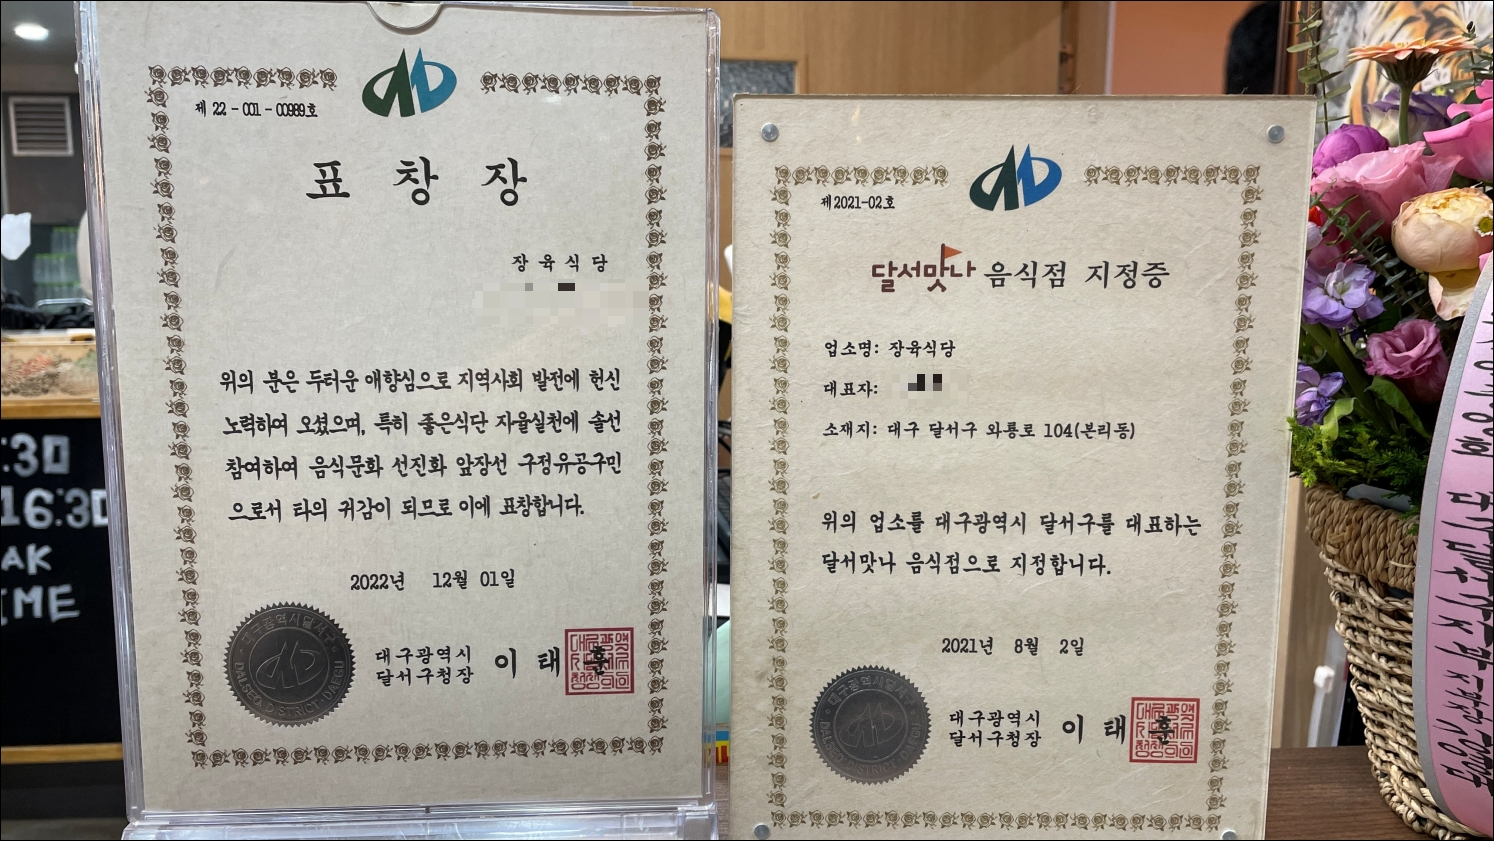 제 22 - 001 - 00989호
표 창 장
장 육 식 당
위의 분은 두터운 애향심으로 지역사회 발전에 헌신
노력하여 오셨으며, 특히 좋은식단 자율실천에 솔선
참여하여 음식문화 선진화 앞장선 구정유공구민
으로서 타의 귀감이 되므로 이에 표창합니다.
2022년 12월 01일
대구광역시
달서구청장 이 태 훈
대구광역시달서구
DALSEO DISTRICT DAEGU
제2021-02호
달서맛나 음식점 지정증
업소명: 장육식당
대표자:
소재지: 대구 달서구 와룡로 104(본리동)
위의 업소를 대구광역시 달서구를 대표하는
달서맛나 음식점으로 지정합니다.
2021년 8월 2일
대구광역시
달서구청장 이 태 훈
:30
16:30
EAK
IME